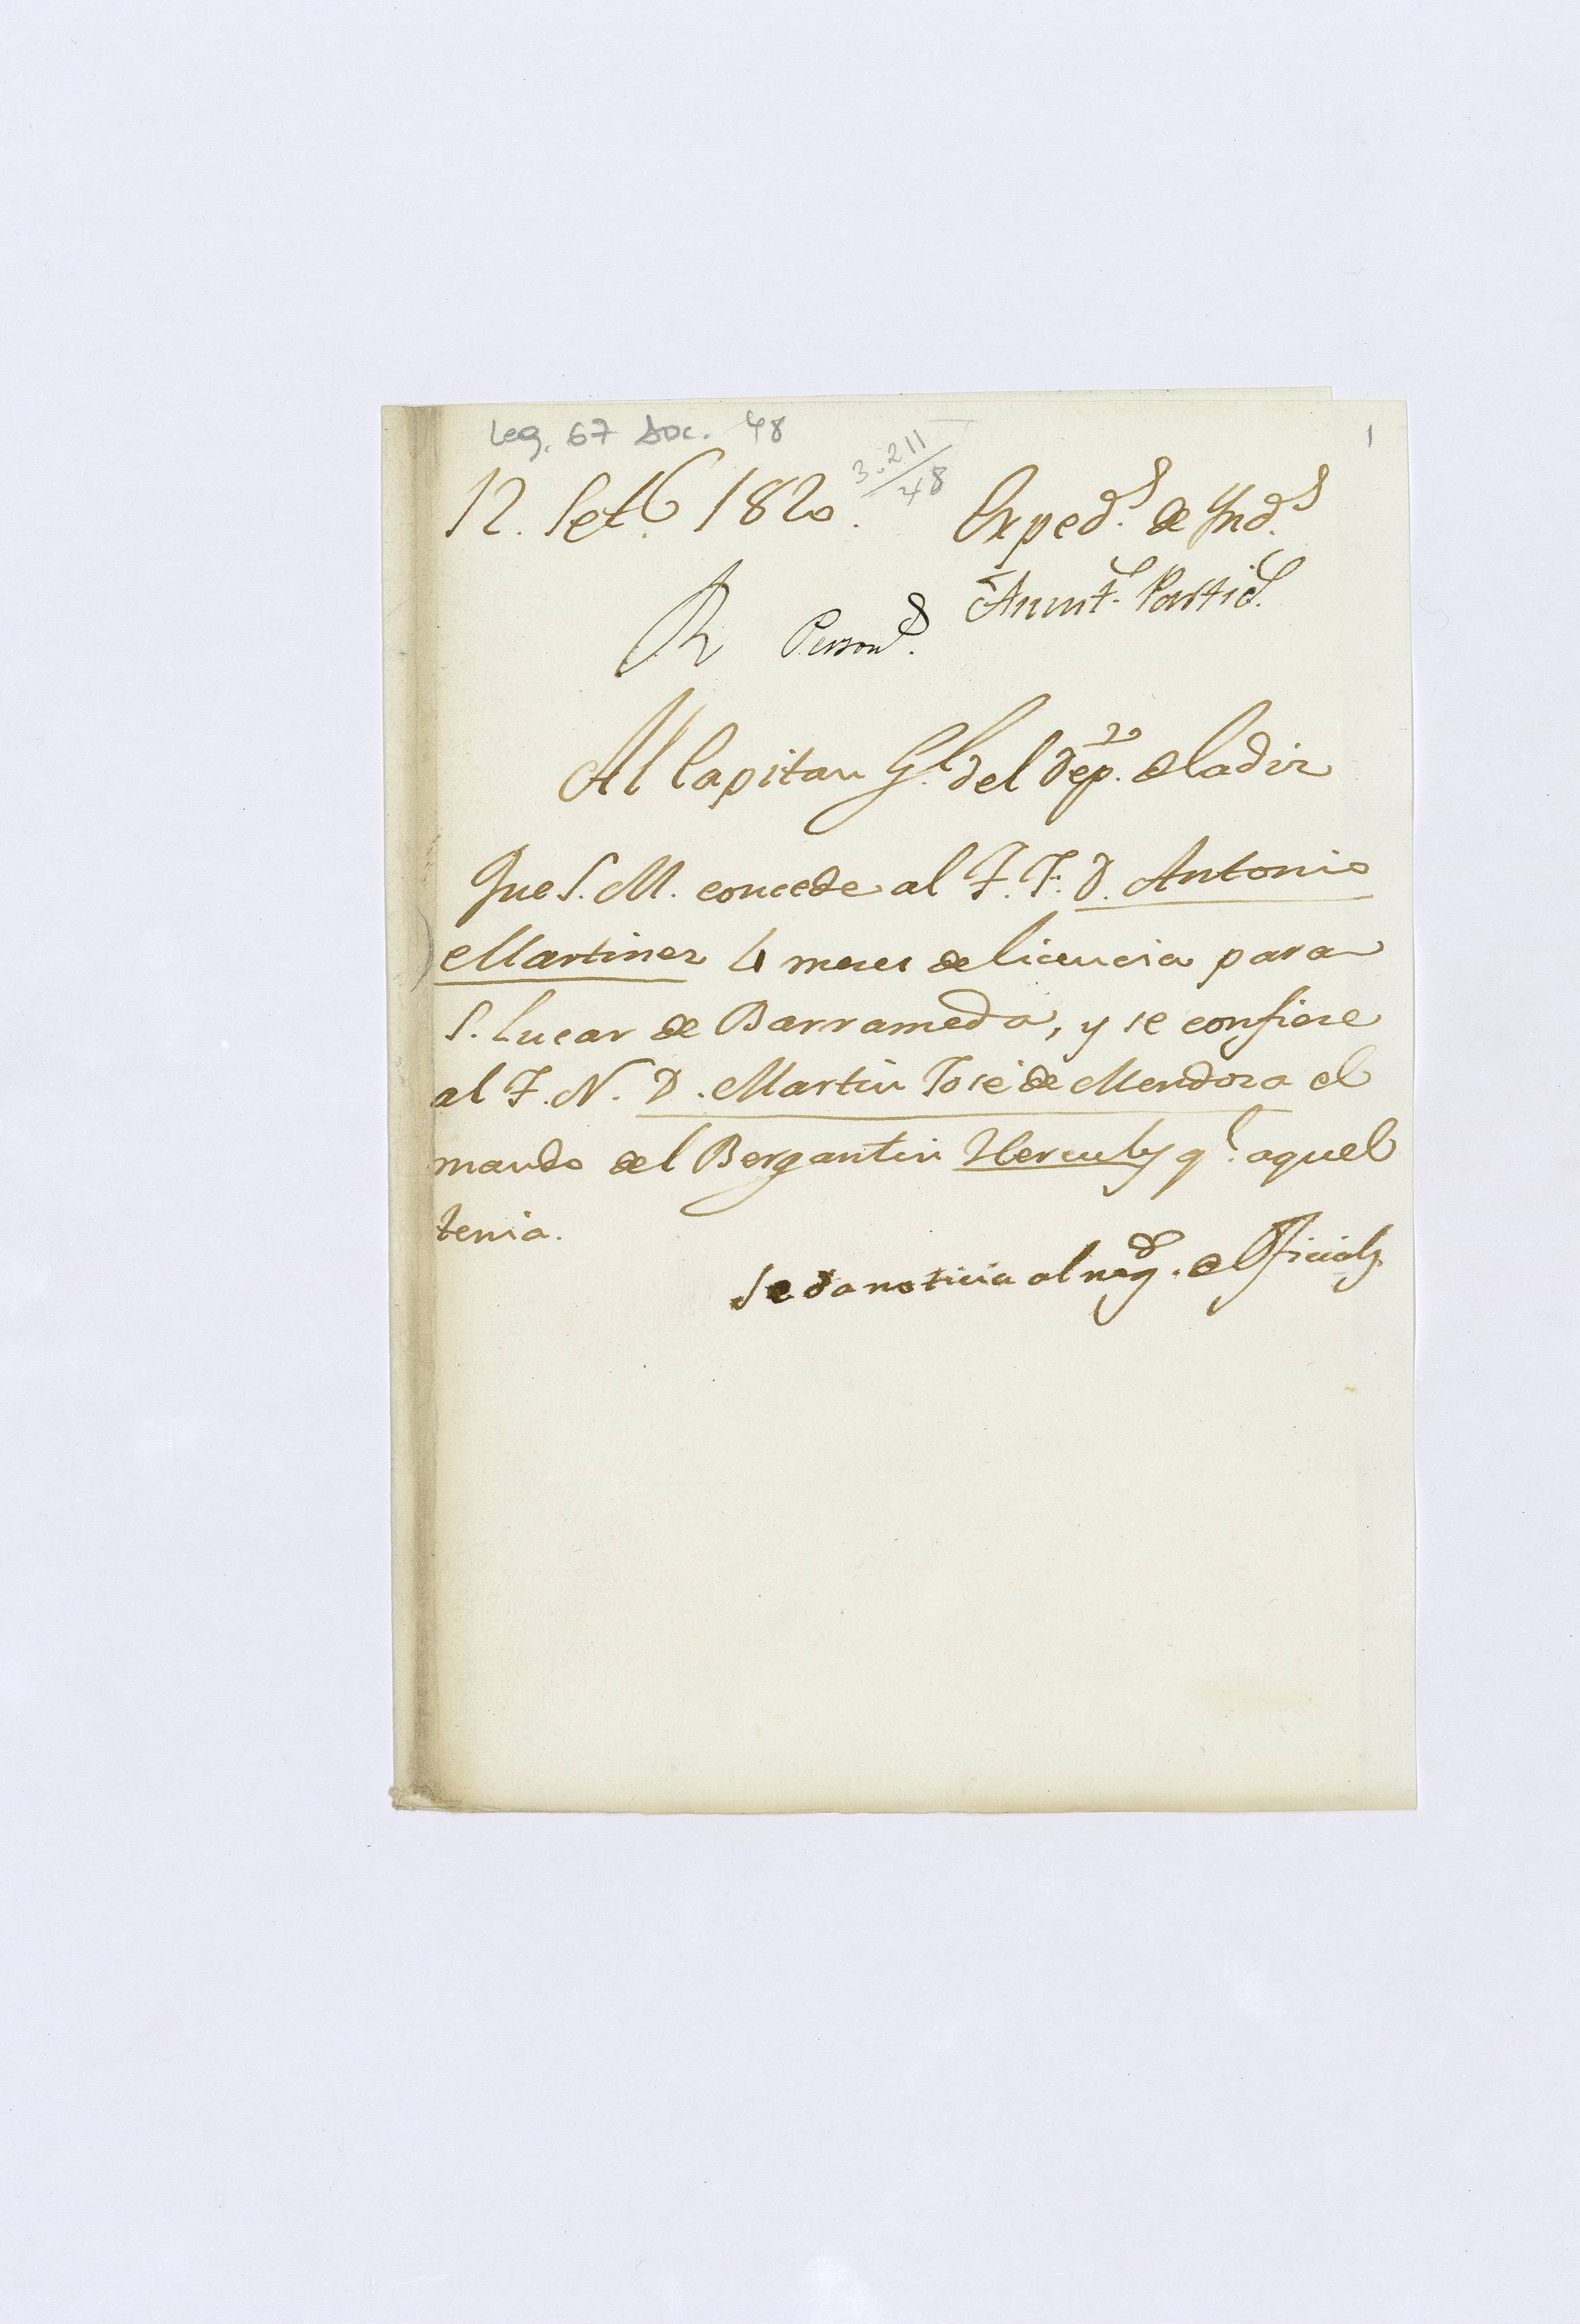 Leg. 67 doc. 48
3.211/48
1
12. Setb. 1820. Exped.s de Ynd.s
Asunt.s Partic.s
R Person.s
Al Capitan G.l del Dep.to de Cadiz
Que S. M. concede al T. F. D. Antonio
Martinez 4 meses de licencia para
S. Lucar de Barrameda, y se confiere
al T. N. D. Martin José de Mendoza el
mando del Bergantin Hercules q.e aquel
tenia.
Se da noticia al neg.do de Oficiales